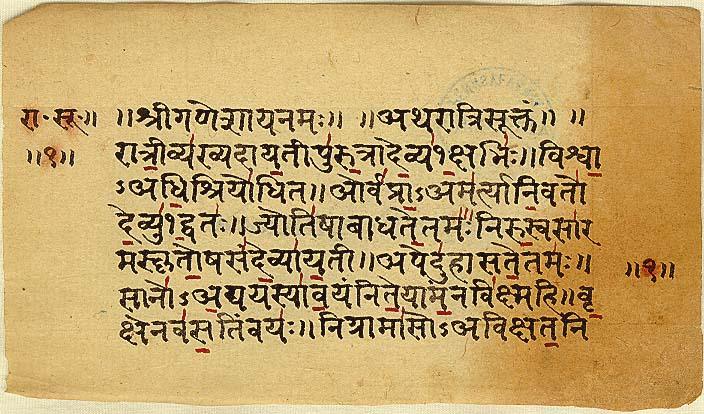 रा॰ सू॰॥ ॥श्रीगणेशायनमः॥ ॥अथरात्रिसूक्तं॥ ॥
॥१॥ रात्रीव्यख्यदायतीपुरुत्रादेव्य१क्षभिः॥विश्वा
ऽअधिश्रियोधित॥ओर्वप्राऽअमर्त्यानिवतो
देव्यु१द्वतः॥ज्योतिषाबाधतेतमः॥निरुस्वसार
मस्कृतोषसंदेव्यायती॥अपेदुहासतेतमः॥
सानोऽअद्ययस्यावयंनितेयामन्नविक्ष्महि॥वृ ॥१॥
क्षेनवसतिंवयः॥निग्रामासोऽअविक्षतनि